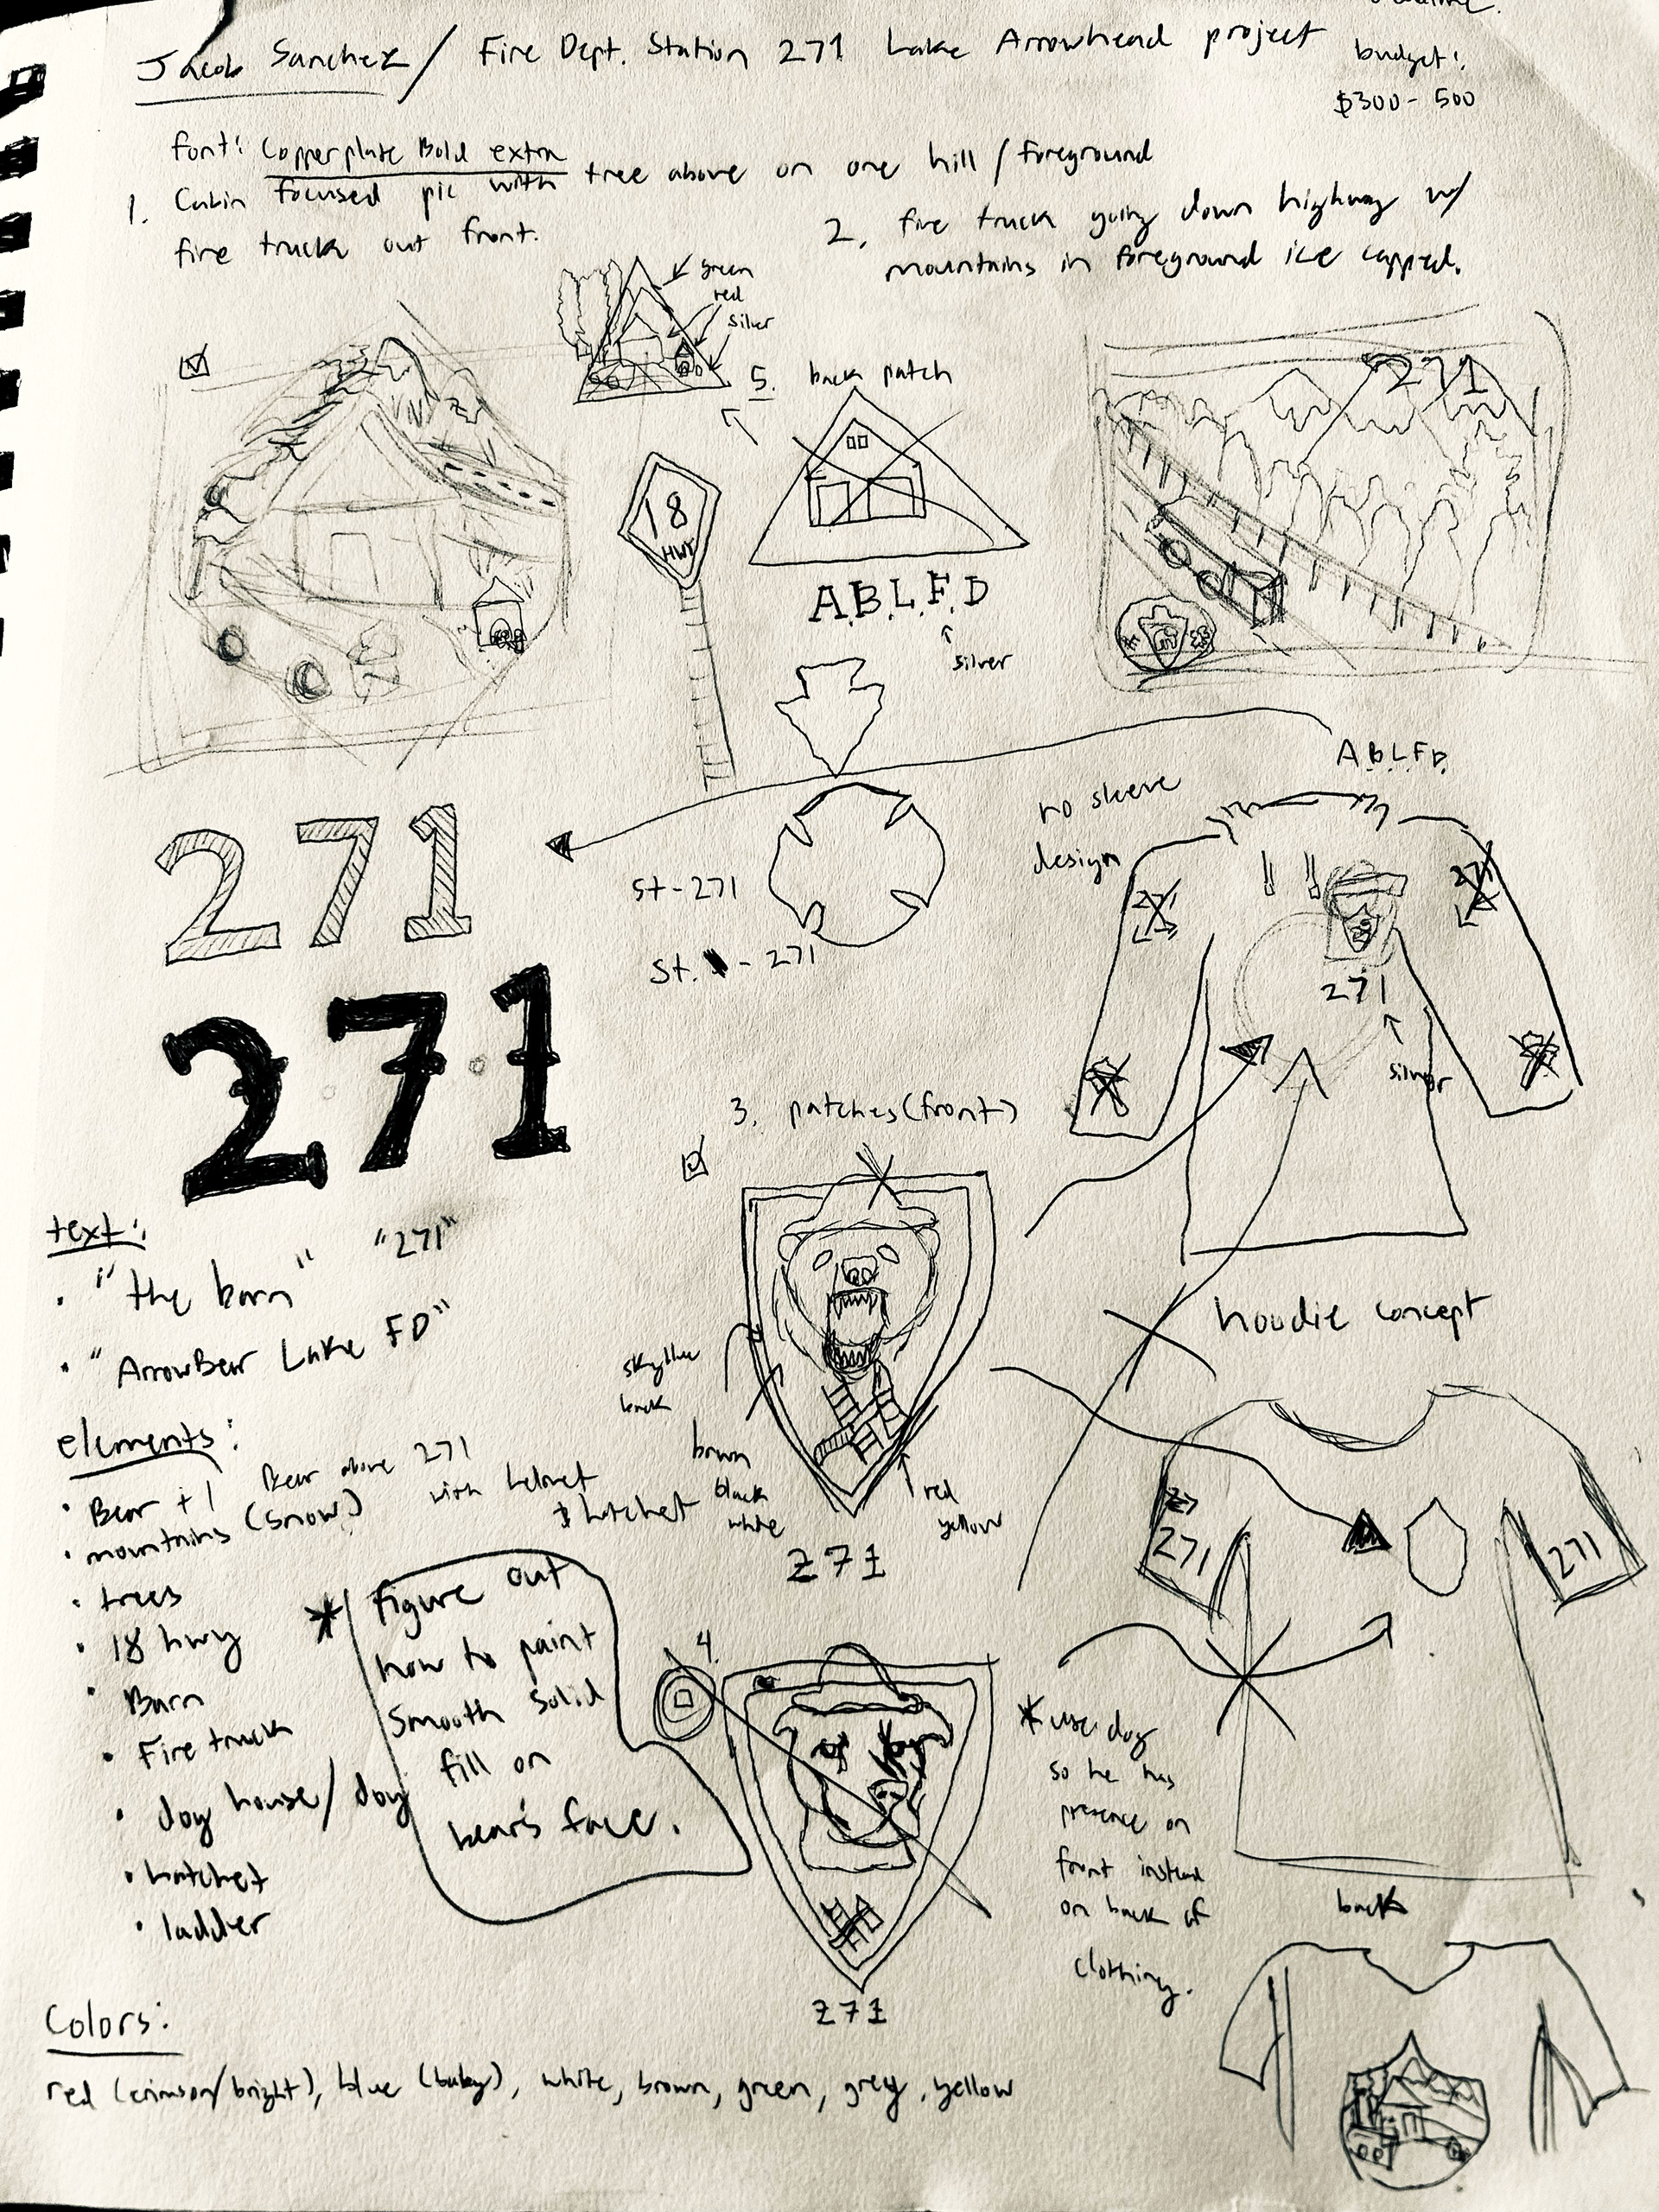 Jacob Sanchez / Fire Dept. Station 271 Lake Arrowhead project
budget:
$300 - 500
font: Copperplate Bold extra
1. Cabin focused pic with tree above on one hill / foreground
fire truck out front.
2. fire truck going down highway w/
mountains in foreground ice capped.
green
red
silver
5. back patch
271
18
HWY
A.B.L.F.D
silver
A.B.L.F.D.
no sleeve
design
271
271
271
silver
271
st-271
St. - 271
271
3. patches (front)
text:
"271"
• "the barn"
• "ArrowBear Lake FD"
hoodie concept
skyblue
back
brown
black
white
red
yellow
271
elements:
• Bear + 1 Bear above 271
with helmet
& hatchet
• mountains (snow)
• trees
• 18 hwy
• Barn
• Fire truck
• dog house / dog
• hatchet
• ladder
* figure out
how to paint
smooth solid
fill on
bear's face.
27
271
271
4.
* use dog
so he has
presence on
front instead
on back of
clothing.
271
back
Colors:
red (crimson/bright), blue (baby), white, brown, green, grey, yellow